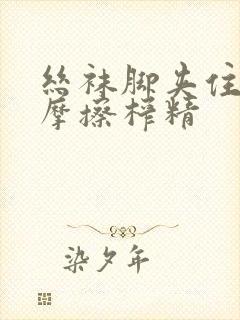 丝袜脚夹住
摩擦榨精
染夕年